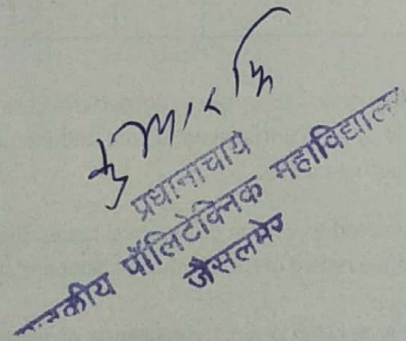 प्रधानाचार्य
पॉलिटेक्निक महाविद्यालय
जैसलमेर